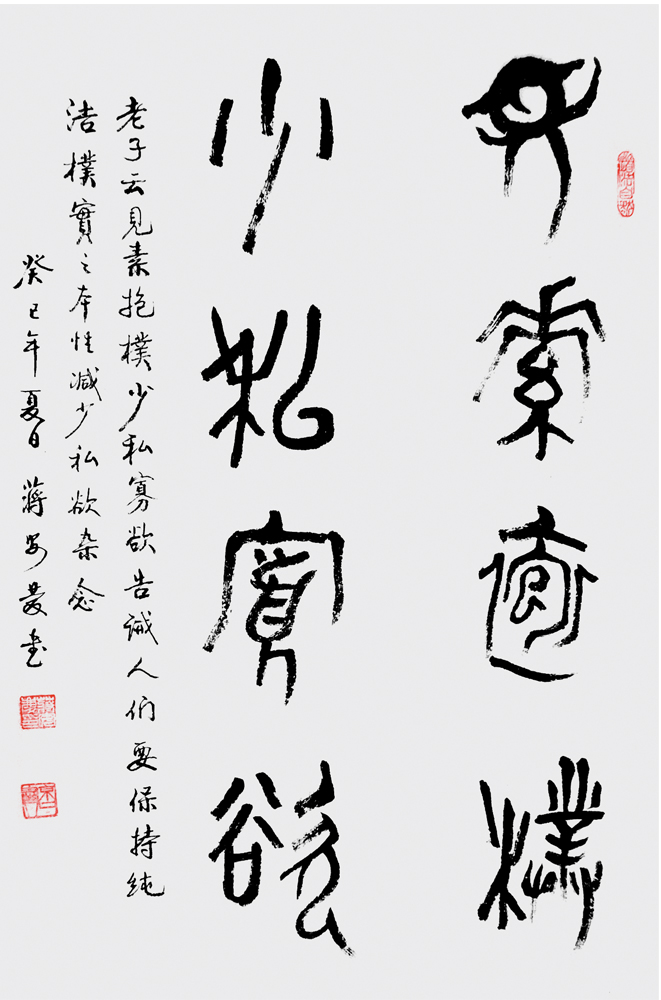 見素抱樸
少私寡欲
老子云見素抱樸少私寡欲告誡人们要保持纯
洁樸實之本性减少私欲杂念
癸巳年夏日蒋安發书